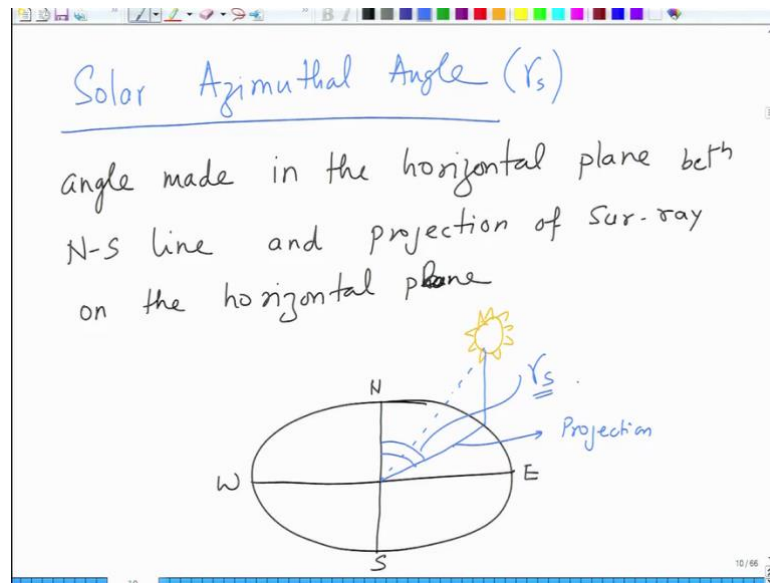 Solar Azimuthal Angle (γs)
angle made in the horizontal plane betn
N-S line and projection of Sur-ray
on the horizontal plane
N
γs
Projection
W
E
S
10 / 66